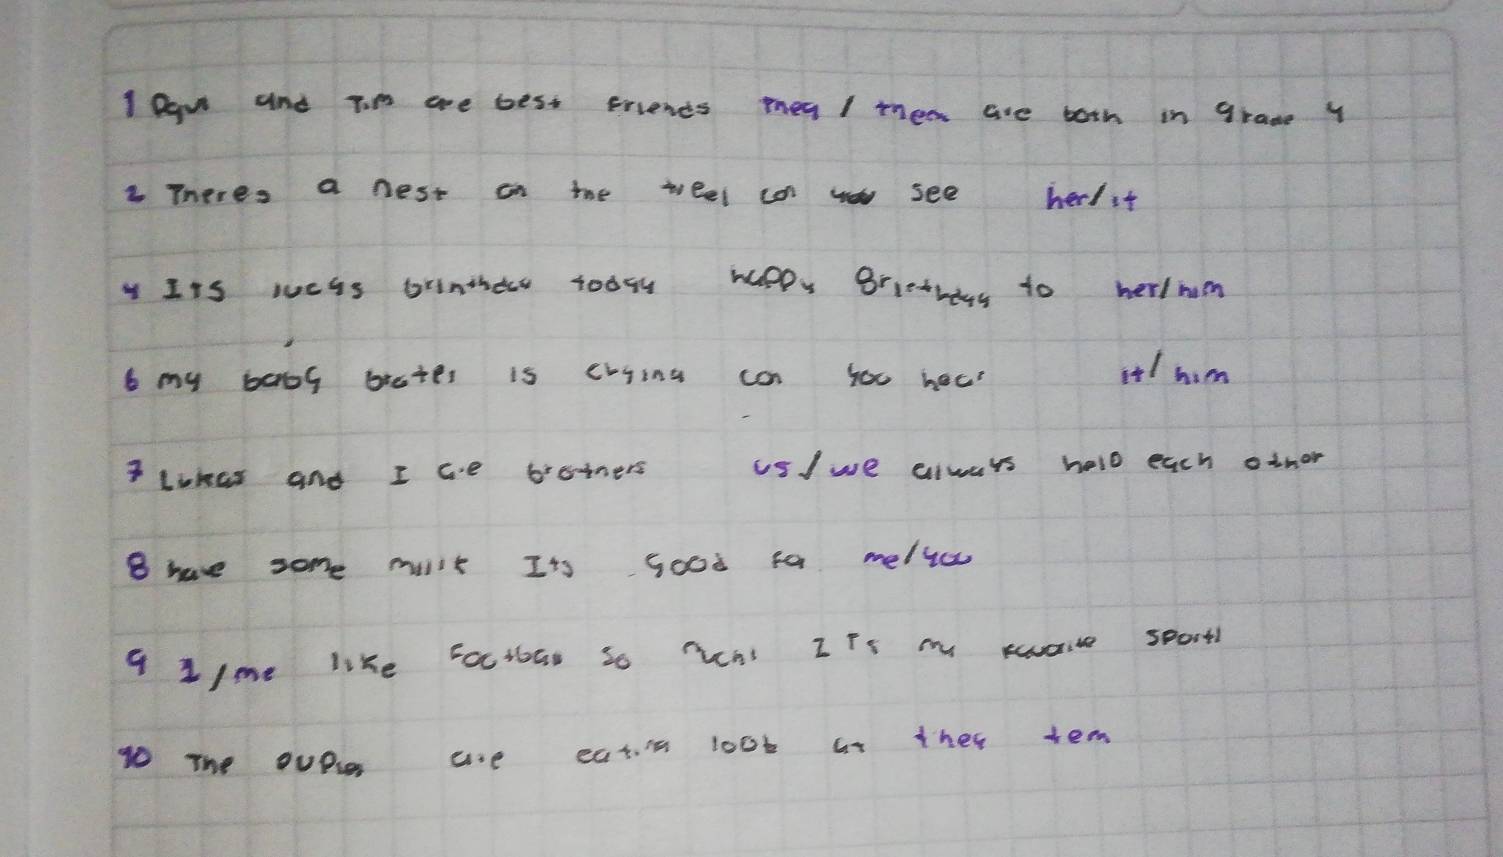 1 Dqui and Tim are best Friends they / them are both in grade 4
2 Theres a nest on the tree! can you see her/it
4 ITS lucas brinthday today happy Bricthday to her/him
6 my baby broter is crying can you hear it/him
7 Lukas and I are brothers us/we always help each other
8 have some milk Its good for me/you
9 I/me like Football so much ITS my favorite sport!
10 The pupies are eating look at they tem